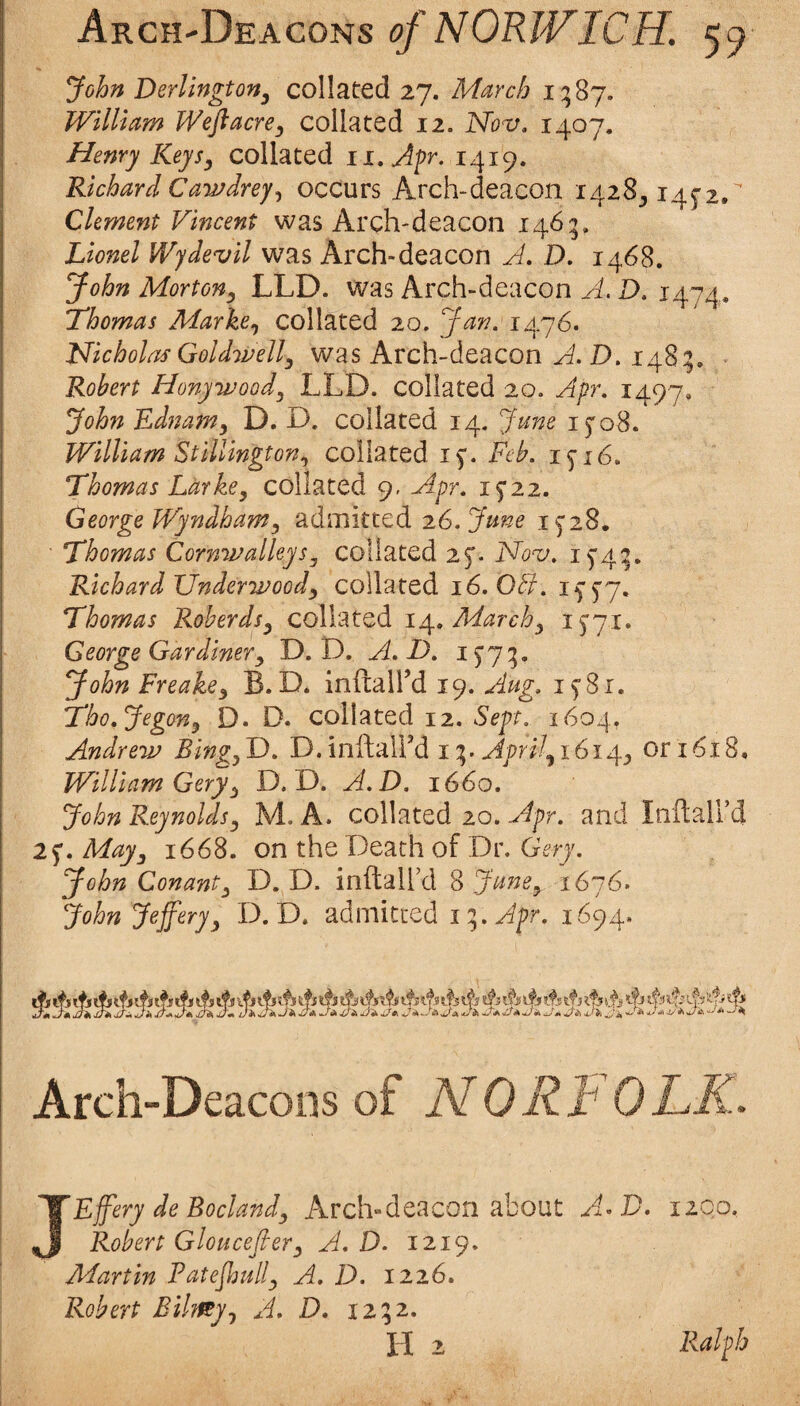 Arch-Deacons of NORWICH. 59
John Derlington, collated 27. March 1387.
William Weſtacre, collated 12. Nov. 1407.
Henry Keys, collated 11. Apr. 1419.
Richard Cawdrey, occurs Arch-deacon 1428, 1452.
Clement Vincent was Arch-deacon 1463.
Lionel Wydevil was Arch-deacon A. D. 1468.
John Morton, LLD. was Arch-deacon A. D. 1474.
Thomas Marke, collated 20. Jan. 1476.
Nicholas Goldwell, was Arch-deacon A. D. 1483.
Robert Honywood, LLD. collated 20. Apr. 1497.
John Ednam, D. D. collated 14. June 1508.
William Stillington, collated 15. Feb. 1516.
Thomas Larke, collated 9. Apr. 1522.
George Wyndham, admitted 26. June 1528.
Thomas Cornwalleys, collated 25. Nov. 1543.
Richard Underwood, collated 16. Oct. 1557.
Thomas Roberds, collated 14. March, 1571.
George Gardiner, D. D. A. D. 1573.
John Freake, B. D. inſtall'd 19. Aug. 1581.
Tho. Jegon, D. D. collated 12. Sept. 1604.
Andrew Bing, D. D. inſtall'd 13. April, 1614, or 1618.
William Gery, D. D. A. D. 1660.
John Reynolds, M. A. collated 20. Apr. and Inſtall'd
25. May, 1668. on the Death of Dr. Gery.
John Conant, D. D. inſtall'd 8 June, 1676.
John Jeffery, D. D. admitted 13. Apr. 1694.
Arch-Deacons of NORFOLK.
JEffery de Bocland, Arch-deacon about A. D. 1200.
Robert Glouceſter, A. D. 1219.
Martin Pateſhull, A. D. 1226.
Robert Bilney, A. D. 1232.
H 2 Ralph